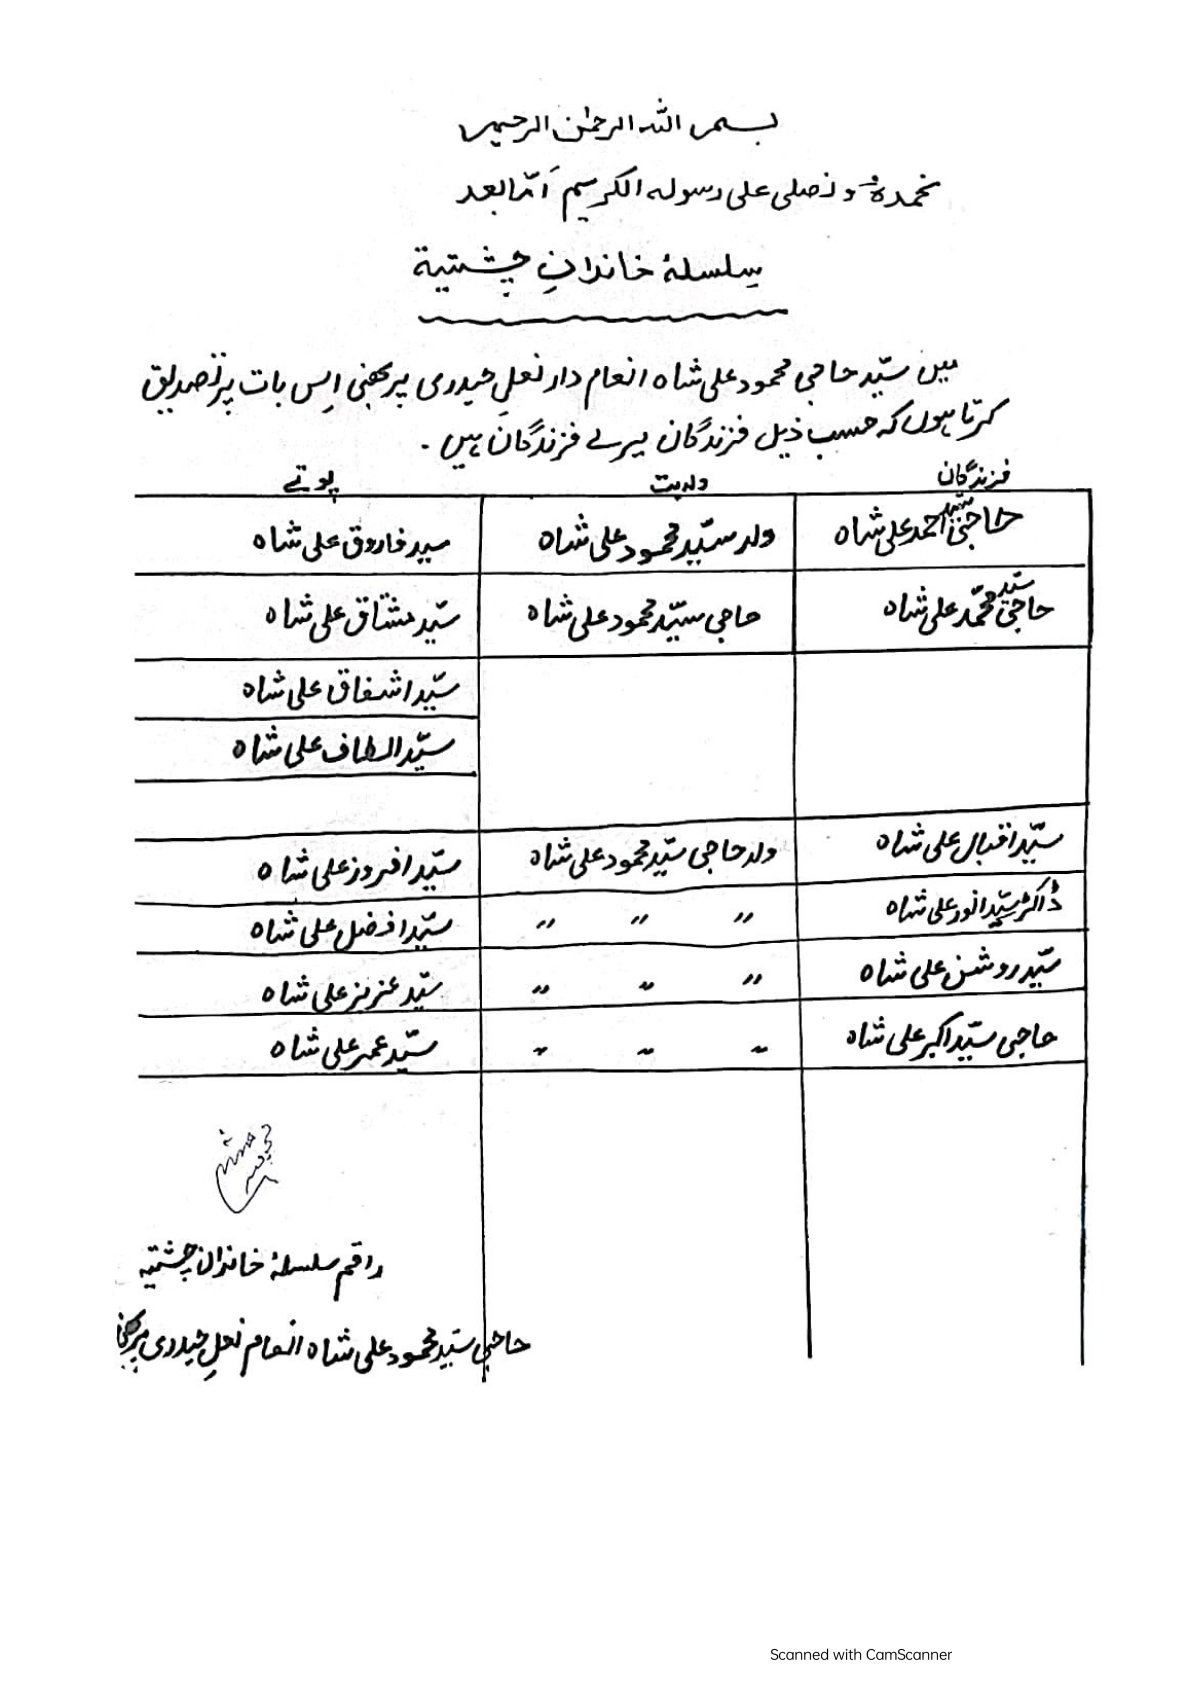 بسم اللہ الرحمٰن الرحیم
نحمدہٗ و نصلی علی رسولہ الکریم اَمّا بعد
سلسلۂ خاندانِ چشتیة
میں سیّد حاجی محمود علی شاہ انعام دار نعلِ حیدری پربھنی اِس بات پر تصدیق
کرتا ہوں کہ حسب ذیل فرزندگان میرے فرزندگان ہیں ۔
فرزندگان ولدیت پوتے
حاجی سیّد احمد علی شاہ ولد سیّد محمود علی شاہ سید فاروق علی شاہ
حاجی سیّد محمّد علی شاہ حاجی سیّد محمود علی شاہ سیّد مشتاق علی شاہ
سیّد اشفاق علی شاہ
سیّد الطاف علی شاہ
سیّد اقبال علی شاہ ولد حاجی سیّد محمود علی شاہ سیّد افروز علی شاہ
ڈاکٹر سیّد انور علی شاہ " " " سیّد افضل علی شاہ
سیّد روشن علی شاہ " " " سیّد عزیز علی شاہ
حاجی سیّد اکبر علی شاہ " " " سیّد عمر علی شاہ
راقم سلسلۂ خاندان چشتیہ
حاجی سیّد محمود علی شاہ انعام نعلِ حیدری پربھنی
Scanned with CamScanner